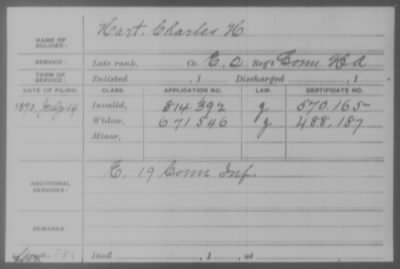 NAME OF SOLDIER: Hart, Charles H.
SERVICE: Late rank, Co. E, 2, Reg't Conn H A
TERM OF SERVICE: Enlisted , 1 Discharged , 1
DATE OF FILING. CLASS. APPLICATION NO. LAW. CERTIFICATE NO.
July 14 Invalid, 814.392 g 570.165
Widow, 671546 g 488.187
Minor,
ADDITIONAL SERVICES: E, 19 Conn Inf.
REMARKS:
Died , 1 , at